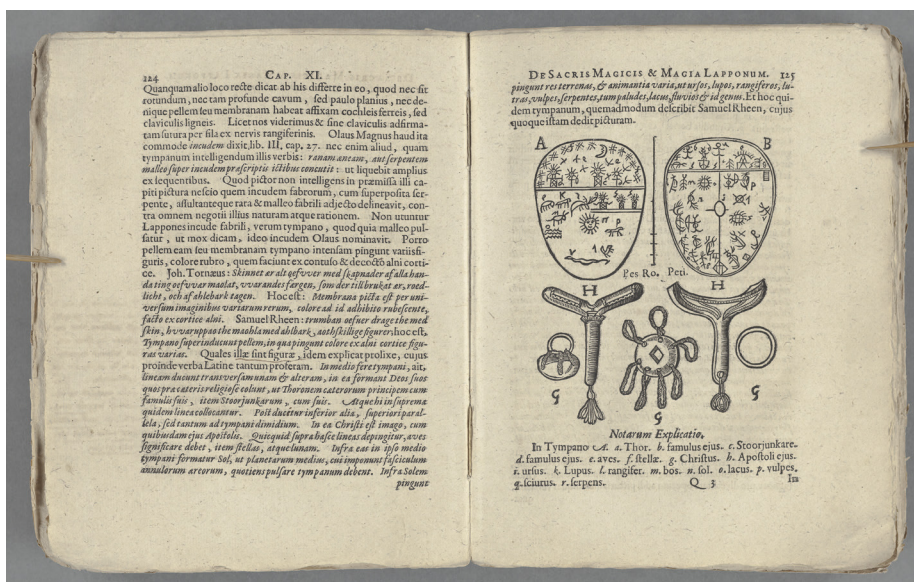 124 CAP. XI.
Quanquam alio loco recte dicat ab his differre in eo, quod nec sit
rotundum, nec tam profunde cavum, sed paulo planius, nec de-
nique pellem seu membranam habeat affixam cochleis ferreis, sed
claviculis ligneis. Licet nos viderimus & sine claviculis adfirma-
tam sutura per fila ex nervis rangiferinis. Olaus Magnus haud ita
commode incudem dixit, lib. III, cap. 27. nec enim aliud, quam
tympanum intelligendum illis verbis: ranam æneam, aut serpentem
malleo super incudem præscriptis ictibus concutit: ut liquebit amplius
ex sequentibus. Quod pictor non intelligens in præmissa illi ca-
piti pictura nescio quem incudem fabrorum, cum superposita ser-
pente, assultanteque rata & malleo fabrili adjecto delineavit, con-
tra omnem negotii illius naturam atque rationem. Non utuntur
Lappones incude fabrili, verum tympano, quod quia malleo pul-
satur, ut mox dicam, ideo incudem Olaus nominavit. Porro
pellem eam seu membranam tympano intensam pingunt variis fi-
guris, colore rubro, quem faciunt ex contuso & decocto alni corti-
ce. Joh. Tornæus: Skinnet er alt oefwer med skapnader af alla han-
da ting oefwar maolat, warandes fargen, som der till brukat ær, roed-
licht, och af ahlebark tagen. Hoc est: Membrana picta est per uni-
versum imaginibus variarum rerum, colore ad id adhibito rubescente,
facto ex cortice alni. Samuel Rheen: trumban oefuer drage the med
skin, hwaruppao the maohla med ahlbark, aothskillige figurer, hoc est,
Tympano superinducunt pellem, in qua pingunt colore ex alni cortice figu-
ras varias. Quales illæ sint figuræ, idem explicat prolixe, cujus
proinde verba Latine tantum proferam. In medio fere tympani, ait,
lineam ducunt transversam unam & alteram, in ea formant Deos suos
quos præ cæteris religiose colunt, ut Thoronem cæterorum principem cum
famulis suis, item Stoorjunkarum, cum suis. Atque hi in suprema
quidem linea collocantur. Post ducitur inferior alia, superiori paral-
lela, sed tantum ad tympani dimidium. In ea Christi est imago, cum
quibusdam ejus Apostolis. Quicquid supra hasce lineas depingitur, aves
significare debet, item stellas, atque lunam. Infra eas in ipso medio
tympani formatur Sol, ut planetarum medius, cui imponunt fasciculum
annulorum æreorum, quotiens pulsare tympanum debent. Infra Solem
pingunt
DE SACRIS MAGICIS & MAGIA LAPPONUM. 125
pingunt res terrenas, & animantia varia, ut ursos, lupos, rangiferos, lu-
tras, vulpes, serpentes, tum paludes, lacus, fluvios & id genus. Et hoc qui-
dem tympanum, quemadmodum describit Samuel Rheen, cujus
quoque istam dedit picturam.
A B
Pes Ro. Peti.
H H
G G G
Notarum Explicatio.
In Tympano A. a. Thor. b. famulus ejus. c. Stoorjunkare.
d. famulus ejus. e. aves. f. stellæ. g. Christus. h. Apostoli ejus.
i. ursus. k. Lupus. l. rangifer. m. bos. n. sol. o. lacus. p. vulpes.
q. sciurus. r. serpens.
Q 3 In